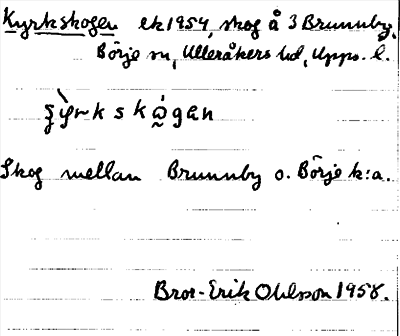 Kyrkskogen ek 1954, skog å 3 Brunnby,
Börje sn, Ulleråkers hd, Upps. l.
Skog mellan Brunnby o. Börje k:a.
Bror-Erik Ohlsson 1958.